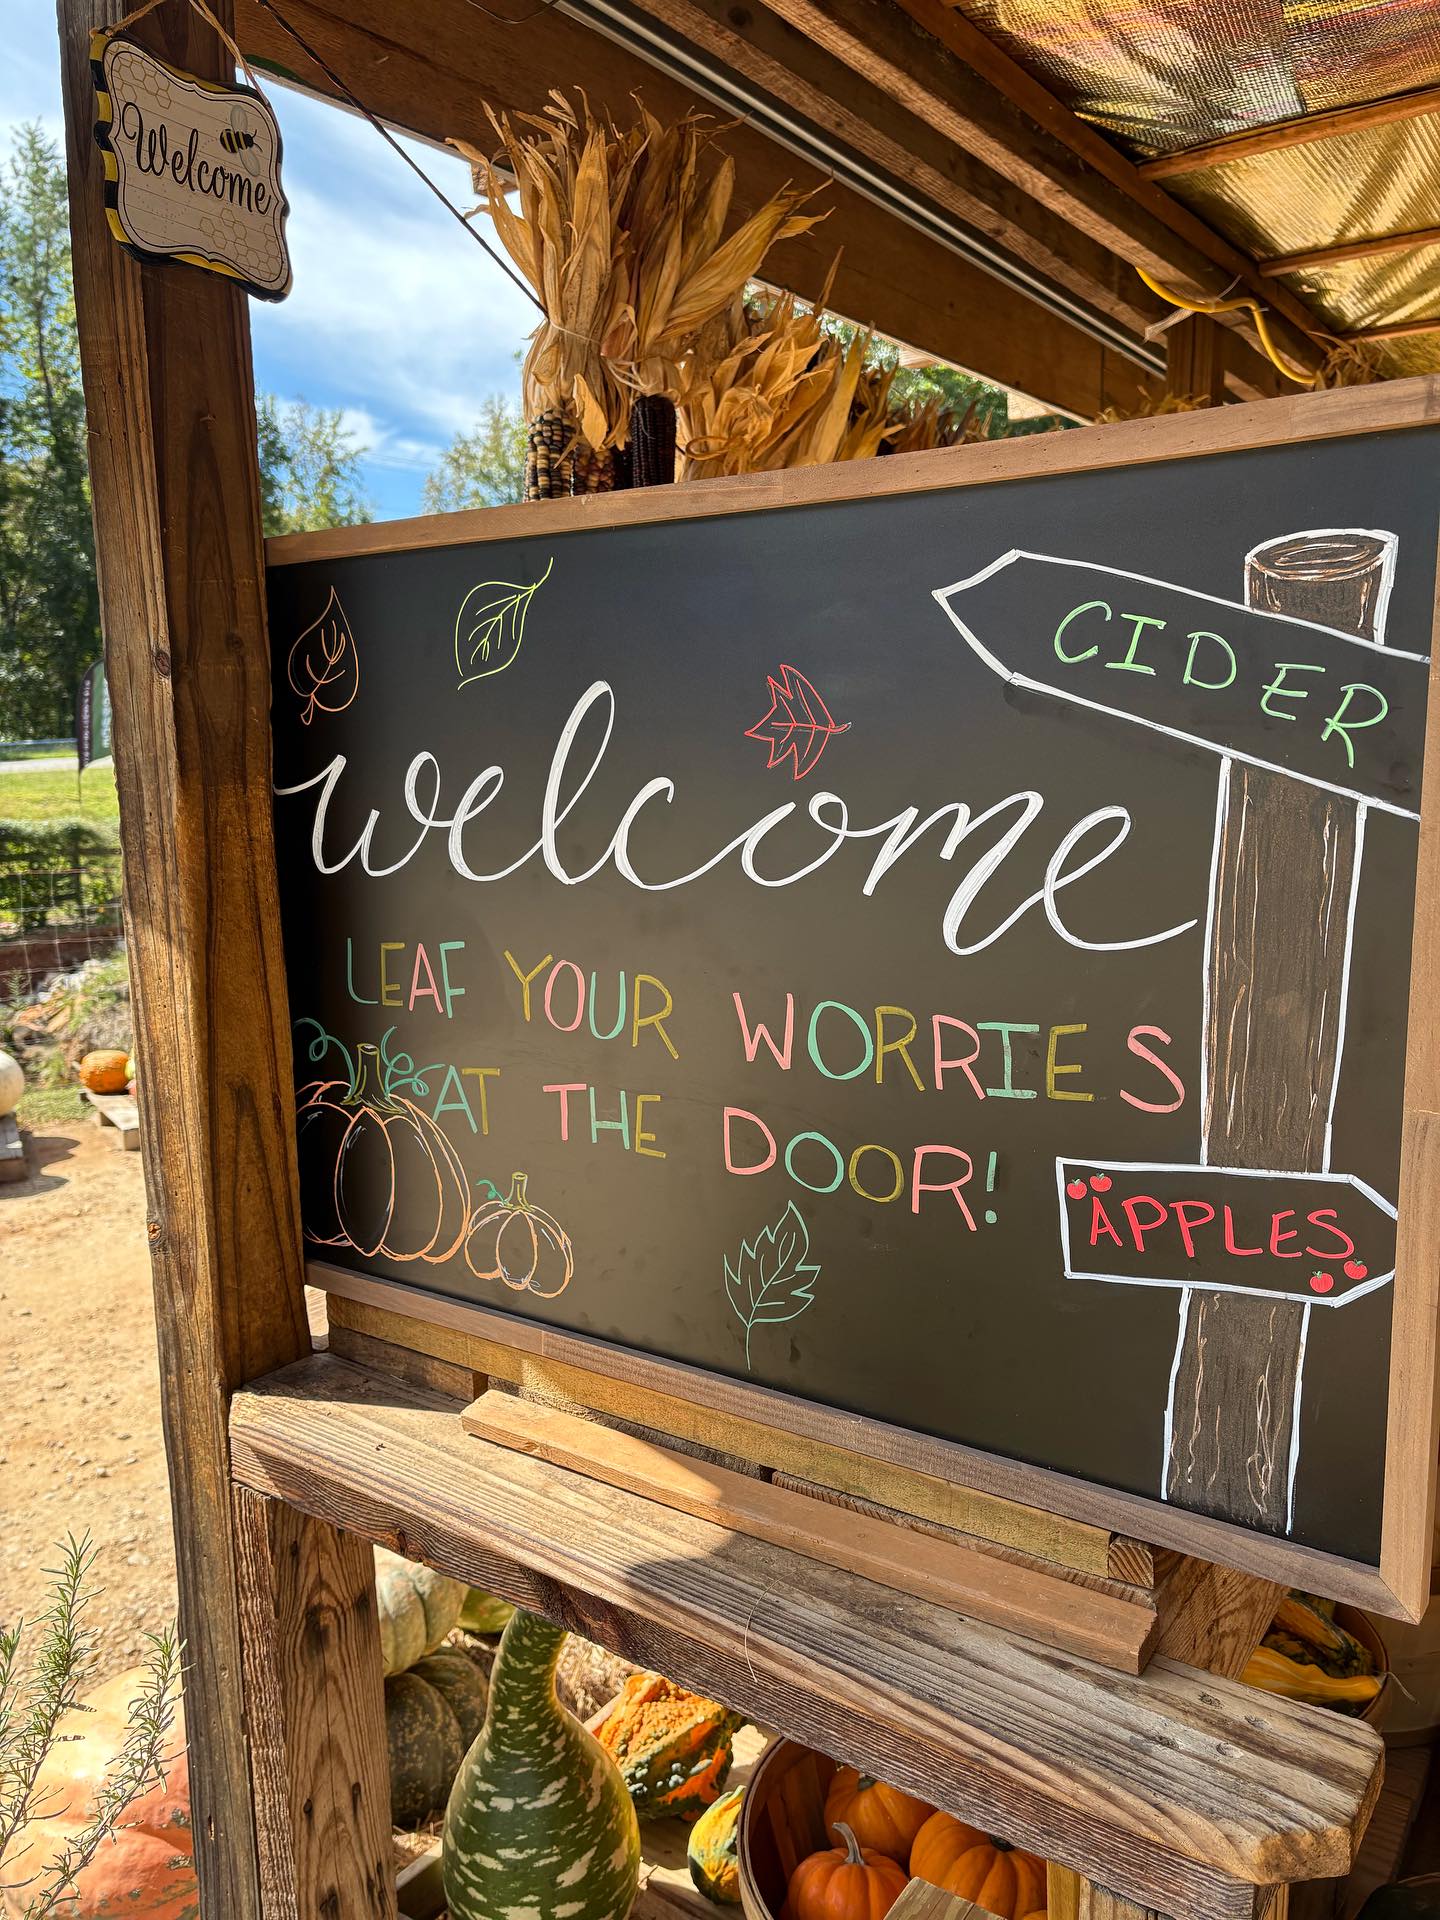 Welcome
CIDER
welcome
LEAF YOUR WORRIES
AT THE DOOR!
APPLES